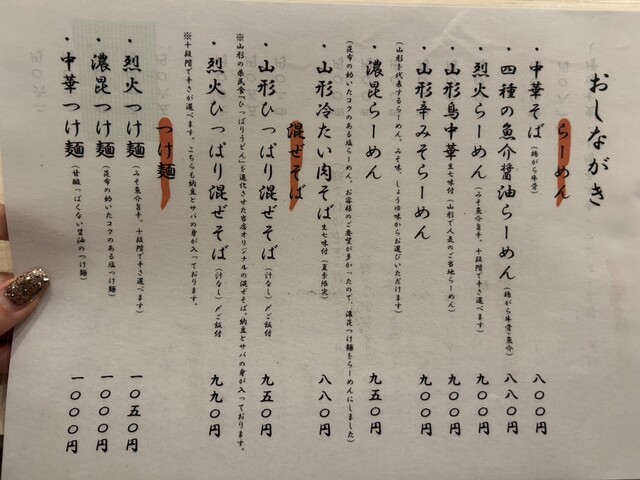 おしながき
らーめん
・中華そば（鶏がら牛骨） 八〇〇円
・四種の魚介醤油らーめん（鶏がら牛骨・魚介） 八八〇円
・烈火らーめん（みそ魚介旨辛。十段階で辛さ選べます） 九〇〇円
・山形鳥中華 生七味付（山形で人気のご当地らーめん） 九〇〇円
・山形辛みそらーめん 九〇〇円
（山形を代表するらーめん。みそ味、しょうゆ味からお選びいただけます）
・濃昆らーめん 九五〇円
（昆布の効いたコクのある塩らーめん。お客様のご要望が多かったので、濃昆つけ麺をらーめんにしました）
・山形冷たい肉そば 生七味付（夏季限定） 八八〇円
混ぜそば
・山形ひっぱり混ぜそば（汁なし）／ご飯付 九五〇円
※山形の県民食「ひっぱりうどん」を進化させた当店オリジナルの混ぜそば。納豆とサバの身が入っております。
・烈火ひっぱり混ぜそば（汁なし）／ご飯付 九九〇円
※十段階で辛さが選べます。こちらも納豆とサバの身が入っております。
つけ麺
・烈火つけ麺（みそ魚介旨辛。十段階で辛さ選べます） 一〇五〇円
・濃昆つけ麺（昆布の効いたコクのある塩つけ麺） 一〇〇〇円
・中華つけ麺（甘酸っぱくない醤油のつけ麺） 一〇〇〇円